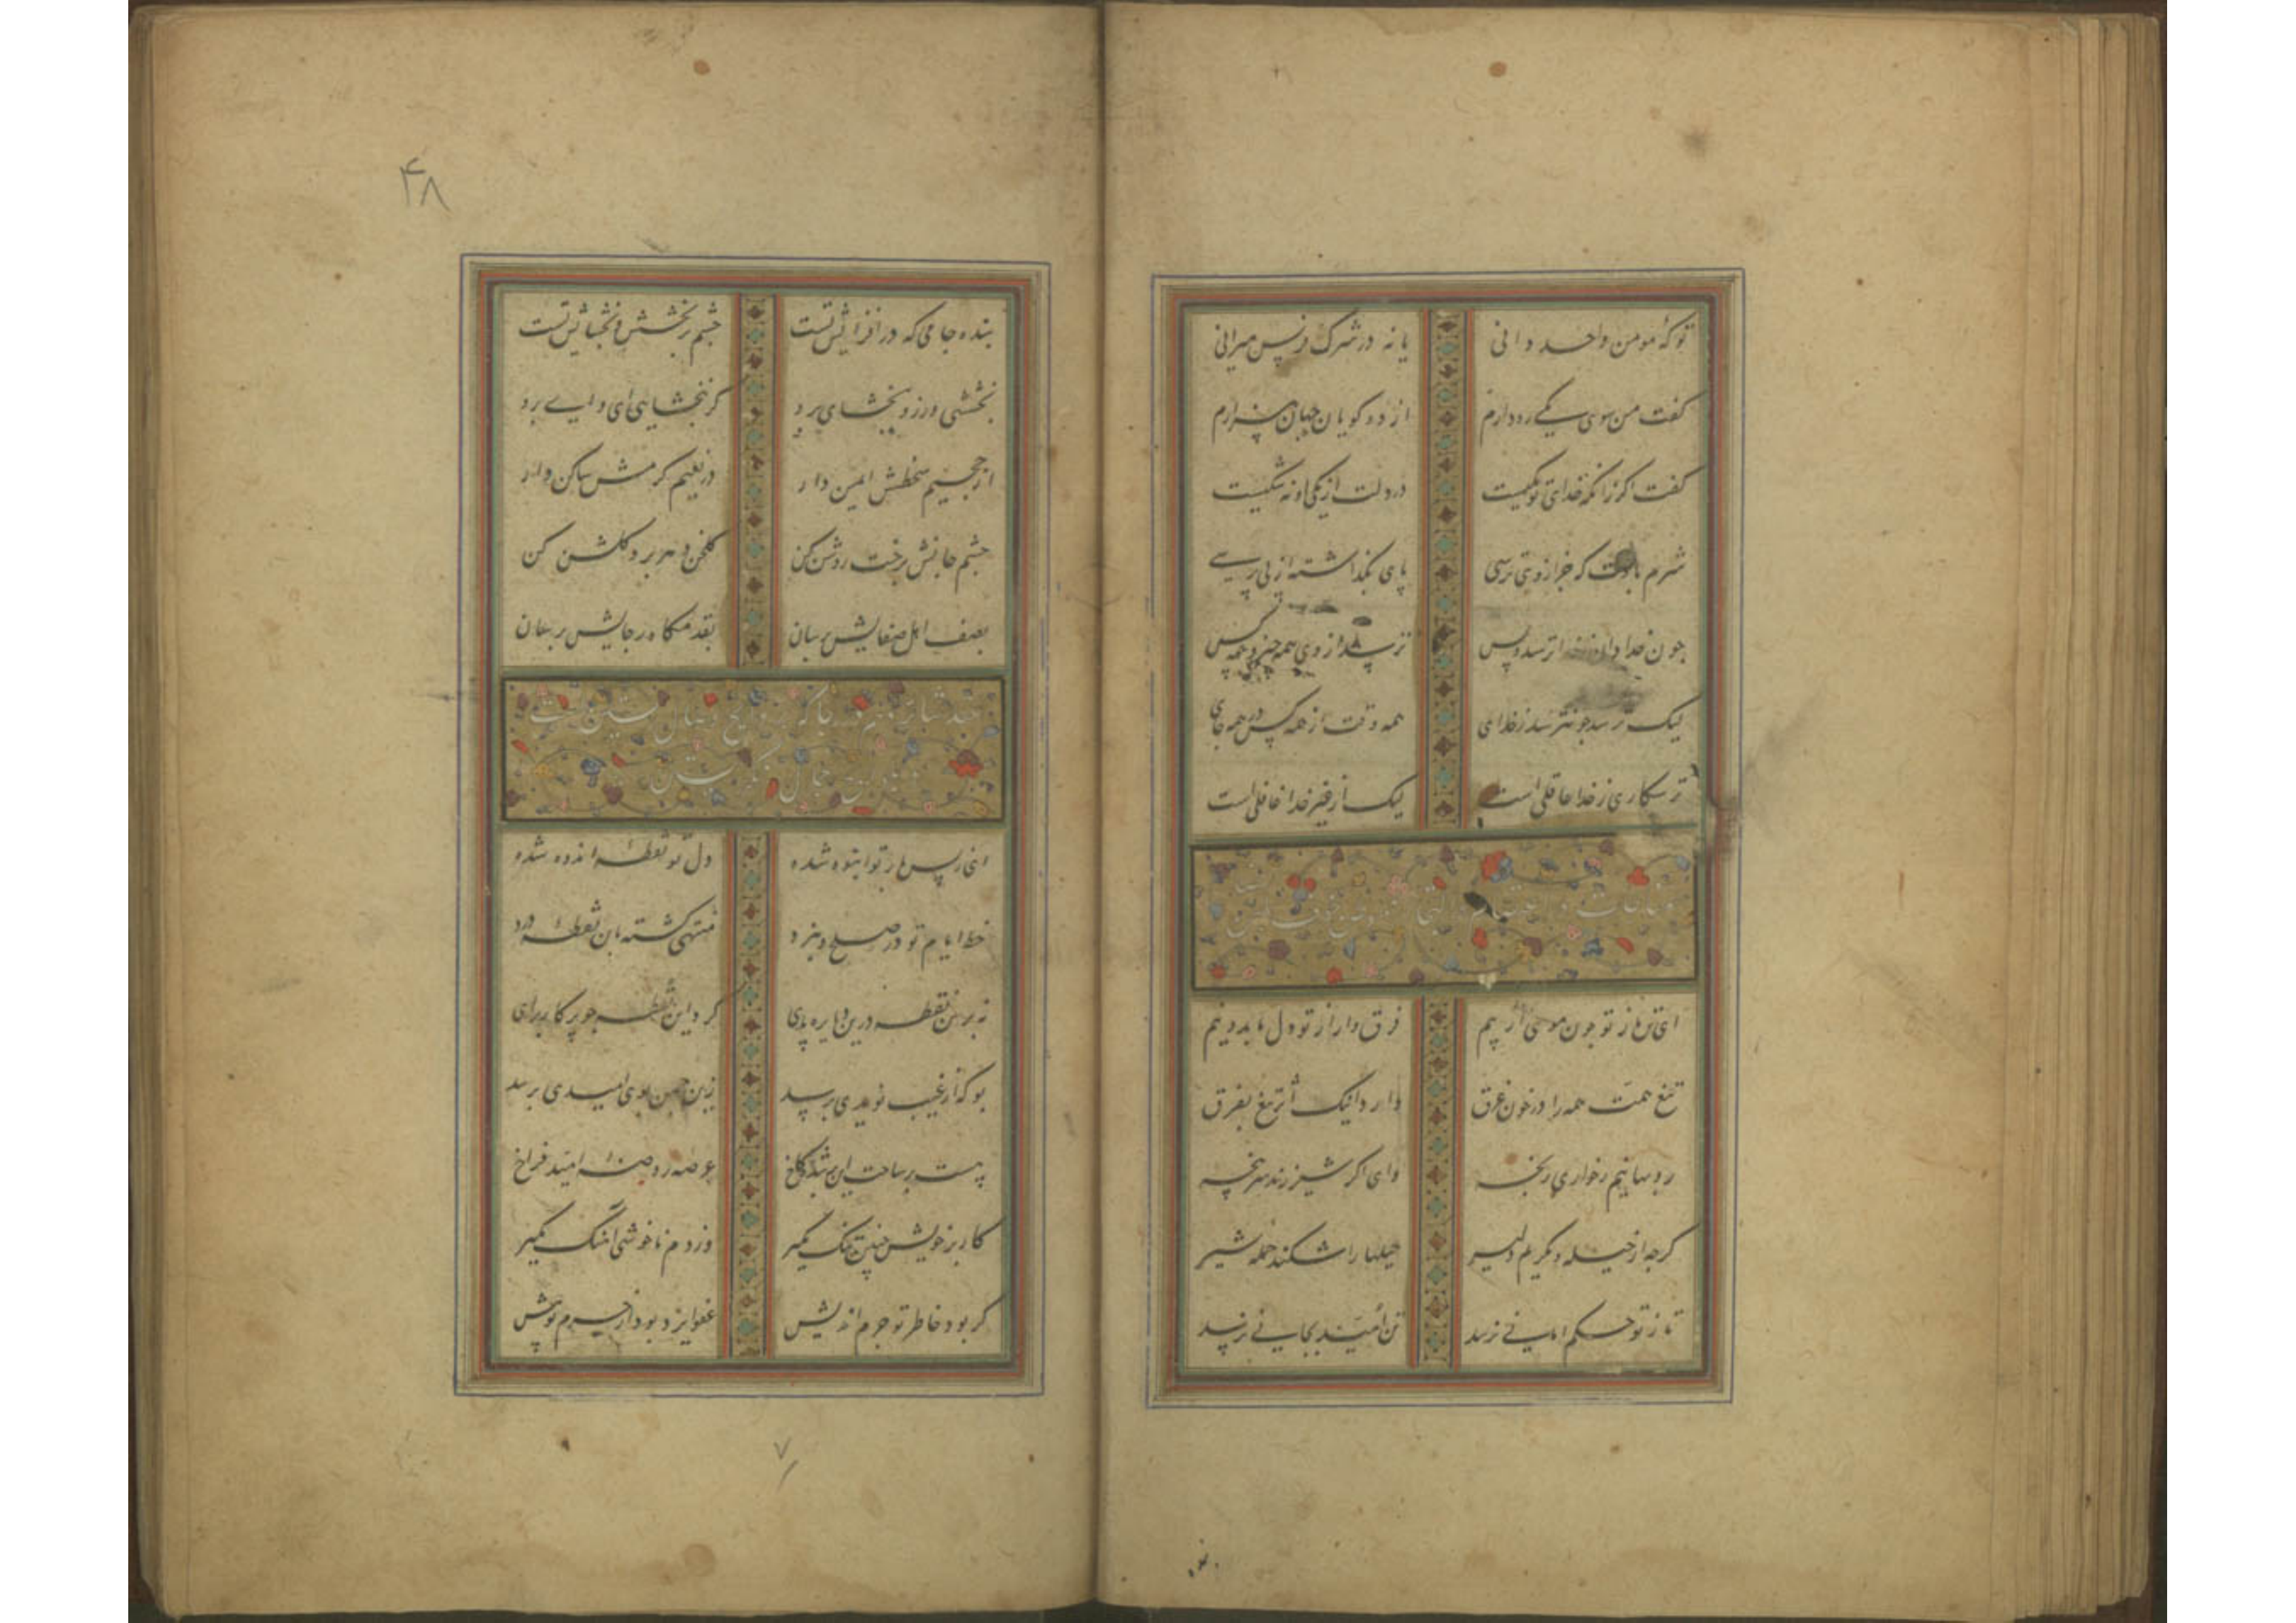 تو که مومن واحد دانی
یا نه در شرک نفس میرانی
گفت من سوی یکی ره دارم
از دو گویان جهان بیزارم
گفت اگر زانکه خدای تو یکیست
در دلت از یکی او نه شکیست
شرم بادت که جز از وی ترسی
پای نگذاشته از پی پرسی
چون خدا دان ز خدا ترسد و بس
ترسد از وی همه چیز و همه کس
لیک ترسد چو نترسد ز خدای
همه وقت از همه کس در همه جای
ترسکاری ز خدا عاقلی است
لیک از غیر خدا غافلی است
مناجات در
ای تن ما ز تو چون موی از بیم
فرق دار از تو دل ما به دو نیم
تیغ همت همه را در خون غرق
دارد اینک اثر تیغ بفرق
روبهانیم ز خواری رنجه
وای اگر شیر زند سرپنجه
گرچه از حیله و مکریم دلیر
حیلها را شکند حمله شیر
تا ز تو حکم امانی نرسد
تن امید بجانی نرسد
۴۸
بنده جامی که در افزایش تست
چشم بر بخشش و بخشایش تست
بخششی ورز و ببخشای برو
گر نبخشایی ای وای برو
از جحیم سخطش ایمن دار
در نعیم کرمش ساکن دار
چشم جانش برخت روشن کن
گلخن دهر برو گلشن کن
بصف اهل صفایش برسان
بقدمگاه رجایش برسان
ای ز بس بار تو انبوه شده
دل تو نقطه اندوه شده
خط ایام تو در صلح و نبرد
منتهی گشته بان نقطه درد
نه برین نقطه درین دایره پای
گرد این نقطه چو پرگار برای
بو که از غیب نویدی برسد
زین چمن بوی امیدی برسد
هست بر ساحت این شبدر کاخ
عرصه روضه امید فراخ
کار بر خویش چنین تنگ مگیر
وز دم ناخوشی آهنگ مگیر
گر بود خاطر تو جرم اندیش
عفو ایزد بود از جرم تو بیش
۷